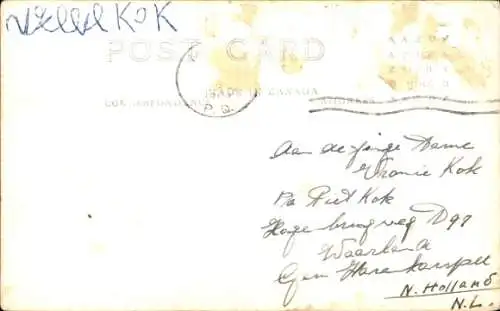 Kok
POST CARD
MADE IN CANADA
CORRESPONDENCE
ADDRESS
P.Q.
Aan de jonge Dame
Vronie Kok
Pa Piet Kok
Hogebrugweg D97
Waarland
Gem Harenkarspel
N. Holland
N.L.